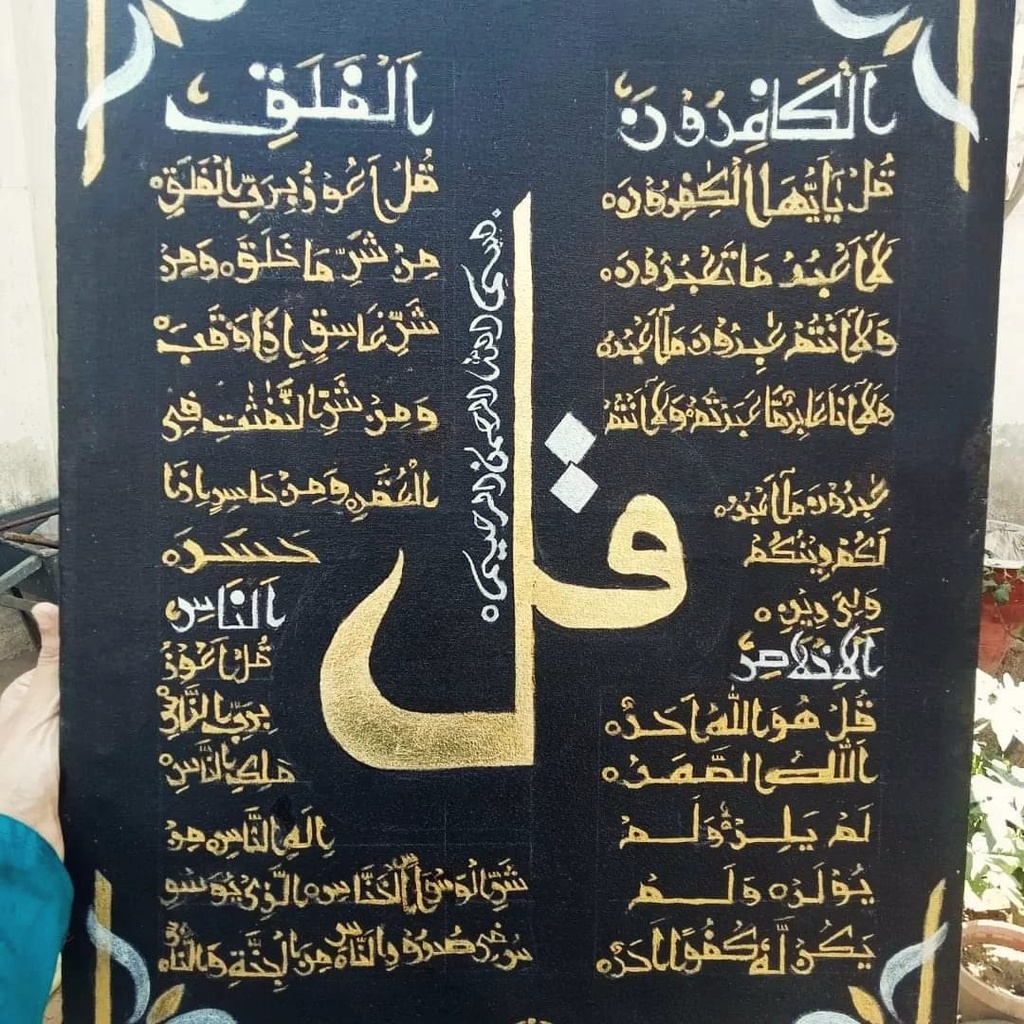 الْكَافِرُونَ
قُلْ يَا أَيُّهَا الْكٰفِرُوْنَ ه
لَا اَعْبُدُ مَا تَعْبُدُوْنَ ه
وَلَا اَنْتُمْ عٰبِدُوْنَ مَا اَعْبُدُ ه
وَلَا اَنَا عَابِدٌ مَّا عَبَدتُّمْ ه وَلَا اَنْتُمْ
عٰبِدُوْنَ مَا اَعْبُدُ ه
لَكُمْ دِيْنُكُمْ
وَلِيَ دِيْنِ ه
الْاِخْلَاص
قُلْ هُوَ اللّٰهُ اَحَدٌ ه
اَللّٰهُ الصَّمَدُ ه
لَمْ يَلِدْ ه وَلَمْ
يُوْلَدْ ه وَلَمْ
يَكُنْ لَّهٗ كُفُوًا اَحَدٌ ه
قل
بسم الله الرحمن الرحيم ه
اَلْفَلَقِ
قُلْ اَعُوْذُ بِرَبِّ الْفَلَقِ ه
مِنْ شَرِّ مَا خَلَقَ ه وَمِنْ
شَرِّ غَاسِقٍ اِذَا وَقَبَ ه
وَمِنْ شَرِّ النَّفّٰثٰتِ فِي
الْعُقَدِ ه وَمِنْ حَاسِدٍ اِذَا
حَسَدَ ه
النَّاسِ
قُلْ اَعُوْذُ
بِرَبِّ النَّاسِ
مَلِكِ النَّاسِ ه
اِلٰهِ النَّاسِ ه مِنْ
شَرِّ الْوَسْوَاسِ الْخَنَّاسِ ه الَّذِيْ يُوَسْوِ
سُ فِيْ صُدُوْرِ النَّاسِ ه مِنَ الْجِنَّةِ وَالنَّاسِ ه